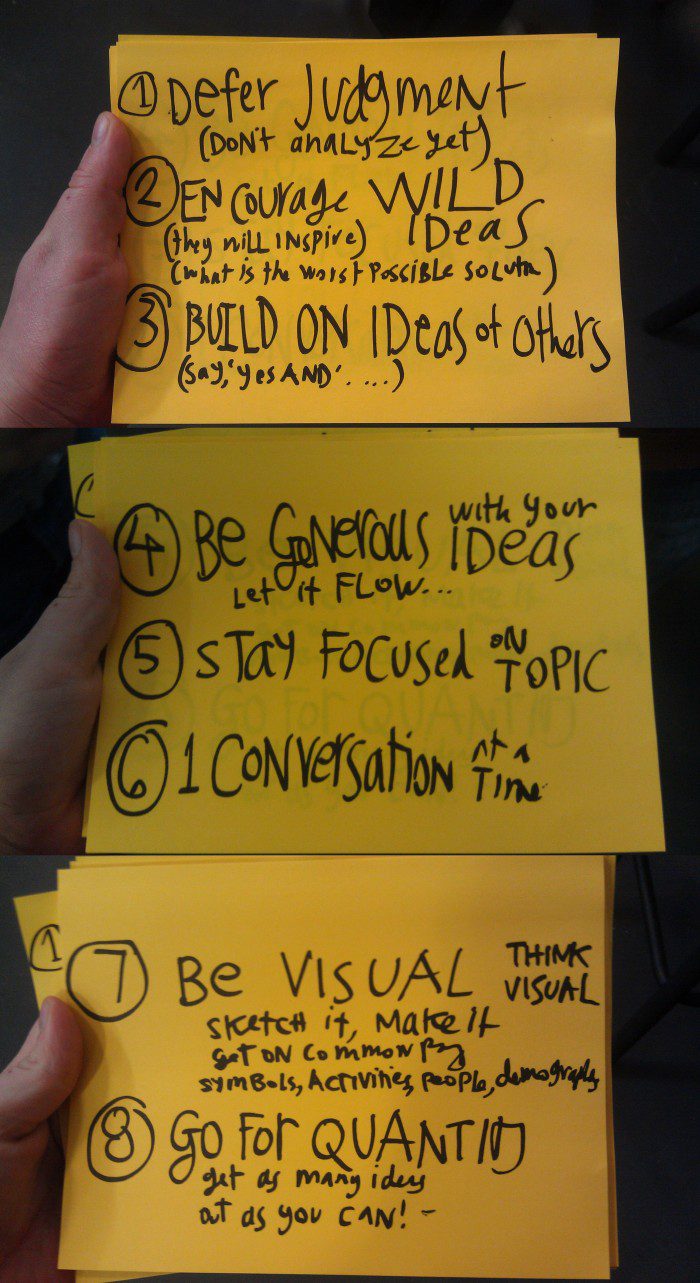 1 Defer Judgment
(Don't analyze yet)
2 Encourage WILD
(they will inspire) Ideas
(what is the worst possible solutn)
3 BUILD ON IDeas of others
(say, 'yes AND' . ...)
4 Be Generous with your
IDeas
Let it FLOW...
5 STAY FOCUSED ON
TOPIC
6 1 Conversation at a
Time
7 Be VISUAL THINK
VISUAL
sketch it, Make It
get on common pg
symbols, Activities, people, demographs
8 GO FOR QUANTITY
get as many ideas
out as you CAN! -
1